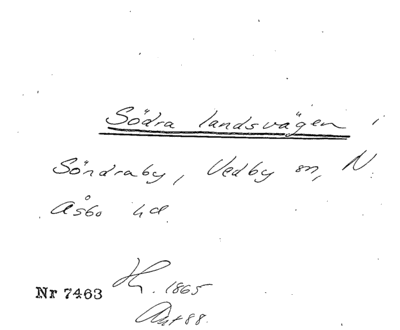 Södra landsvägen i
Söndraby, Vedby sn, N.
Åsbo hd
Nr 7463 1865
88.